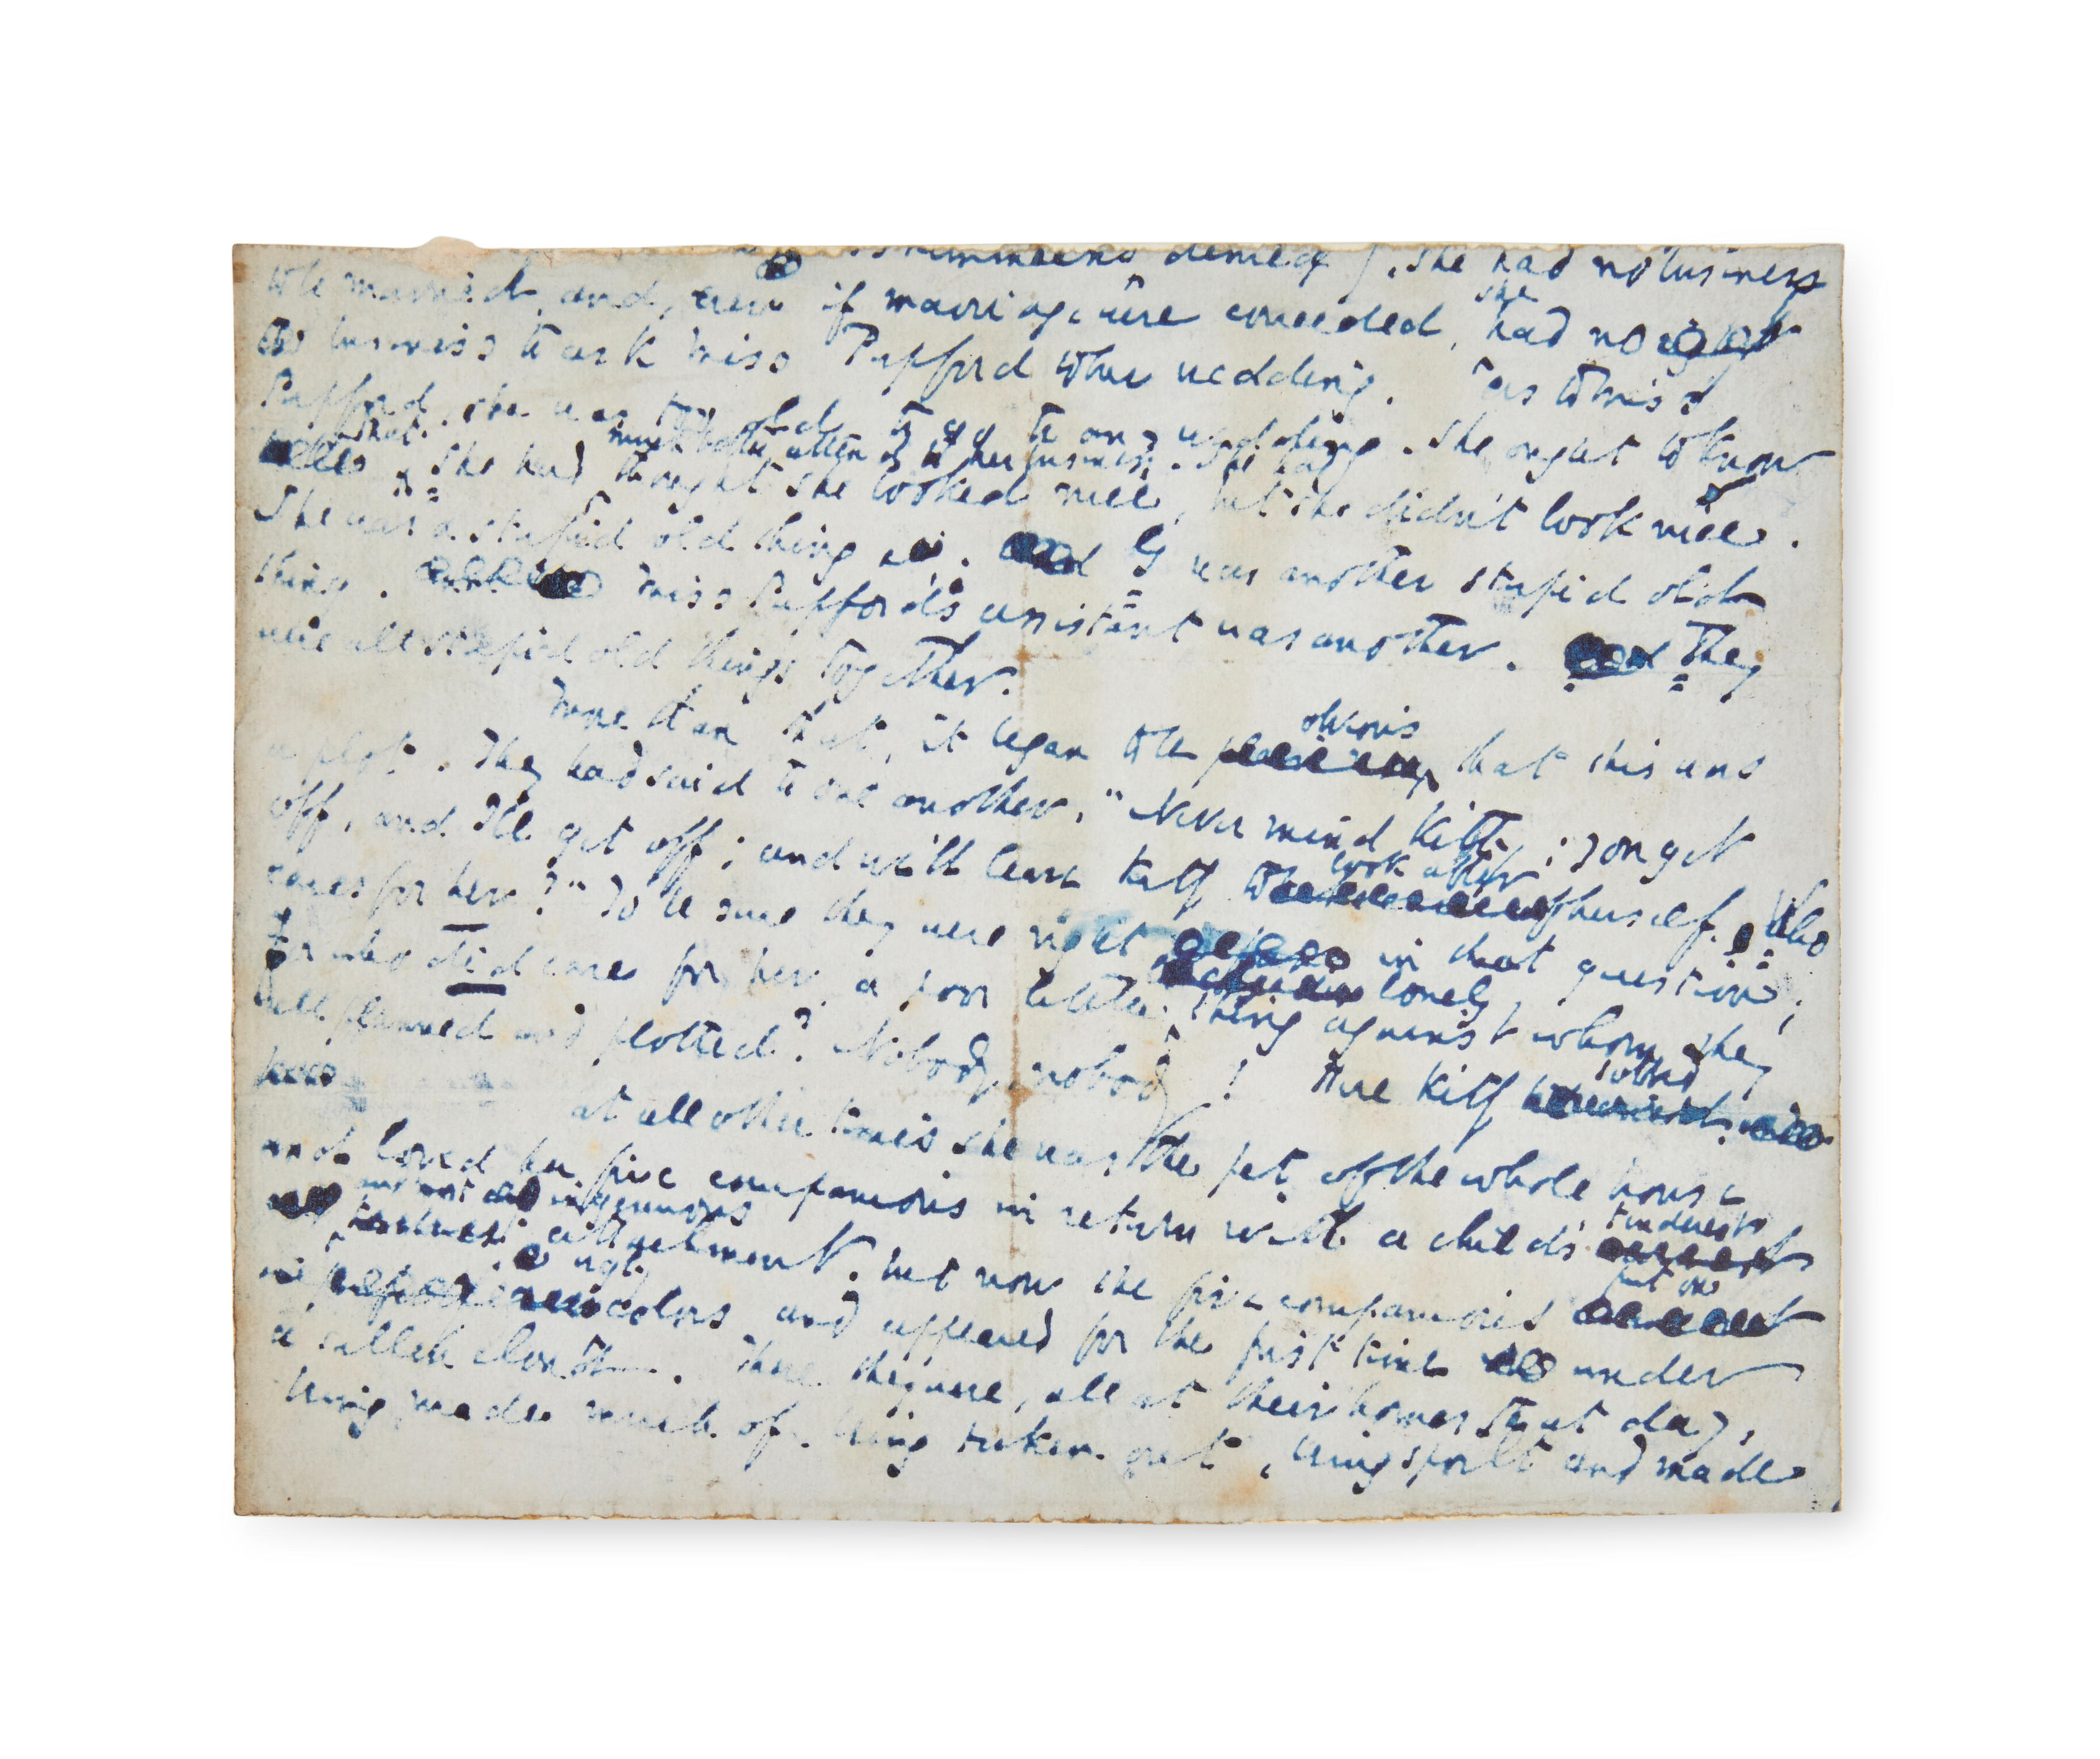 denied), she had no business
to be married, and, even if marriage were conceded, she had no
business to ask Miss Pupford to her wedding. As to Miss
Pupford, she was too old to go to any wedding. She ought to know
that. She had much better attend to her business. She had
thought she looked nice, but she didn't look nice.
She was a stupid old thing. G was another stupid old
thing. Miss Pupford's assistant was another. They
were all stupid old things together.
More than that, it began to be obvious that this was
a plot. They had said to one another, "Never mind Kitty; you get
off, and I'll get off; and we'll leave Kitty to look after herself. Who
cares for her?" To be sure they were right in that question;
for who did care for her, a poor little lonely thing against whom they
all planned and plotted? Nobody, nobody! Here Kitty sobbed.
At all other times she was the pet of the whole house
and loved her five companions in return with a child's tenderest
and most ingenuous attachment; but now the five companions put on
ugly colors, and appeared for the first time under
a sullen cloud. There they were, all at their homes that day,
being made much of, being taken out, being spoilt and made